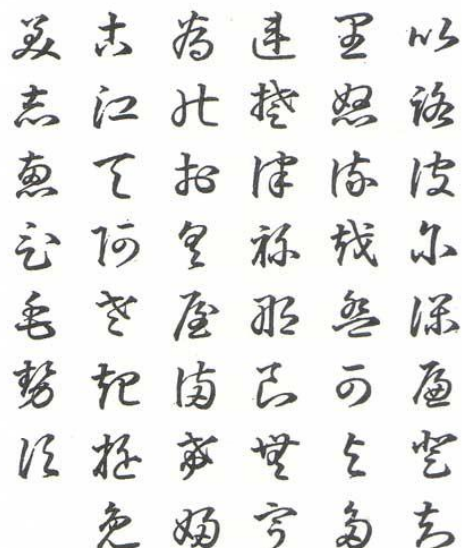 以路波尓保登知
里怒流越可与多
連楚津祢那良無宇
為能於屋満婦
古江天阿起遊免
美志恵毛勢須